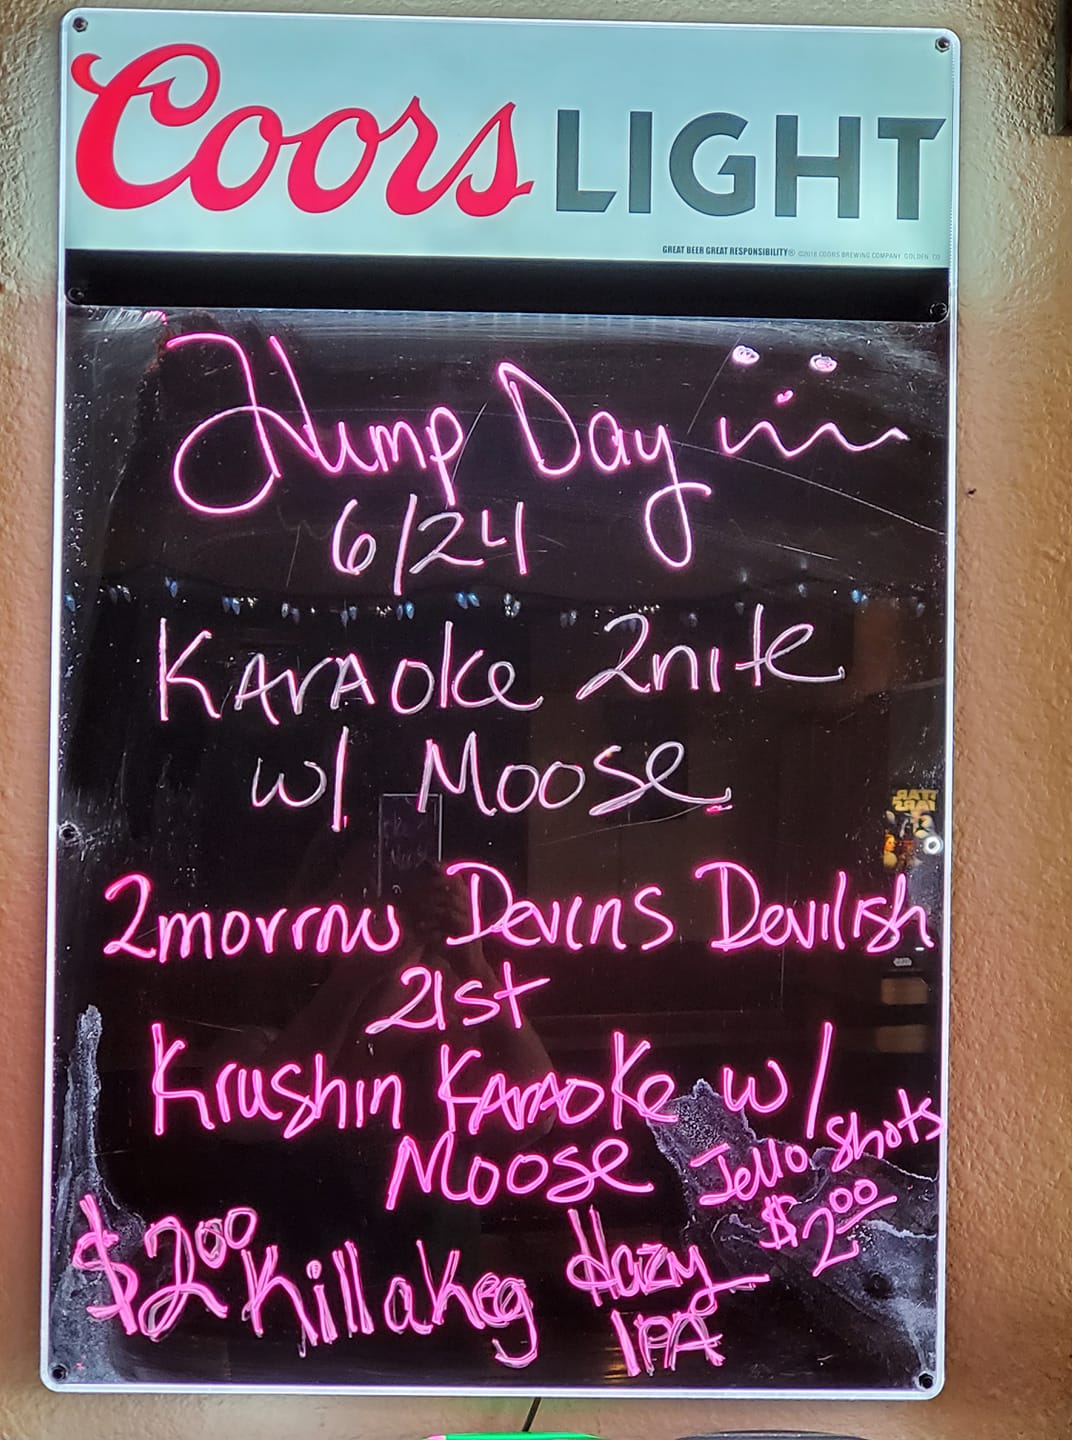 Coors LIGHT
GREAT BEER GREAT RESPONSIBILITY® ©2018 COORS BREWING COMPANY, GOLDEN, CO
Hump Day
6/24
KArAoke 2nite
w/ Moose
2morrow Devins Devilish
21st
Krushin KArAoke w/
Moose
Jello Shots
$2.00
$2.00 Kill a Keg Hazy
IPA